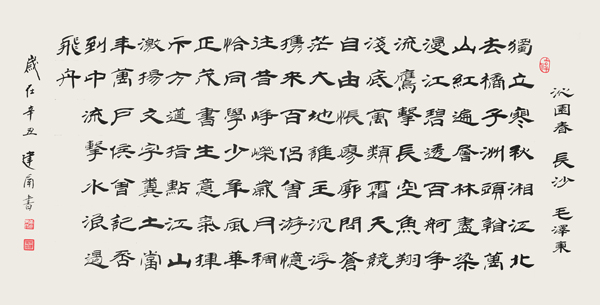 沁園春 長沙 毛澤東
獨立寒秋湘江北
去橘子洲頭看萬
山紅遍層林盡染
漫江碧透百舸爭
流鷹擊長空魚翔
淺底萬類霜天競
自由悵廖廓問蒼
茫大地誰主沉浮
攜來百侶曾游憶
往昔崢嶸歲月稠
恰同學少年風華
正茂書生意氣揮
斥方遒指點江山
激揚文字糞土當
年萬戶侯曾記否
到中流擊水浪遏
飛舟
歲在辛丑建甫書